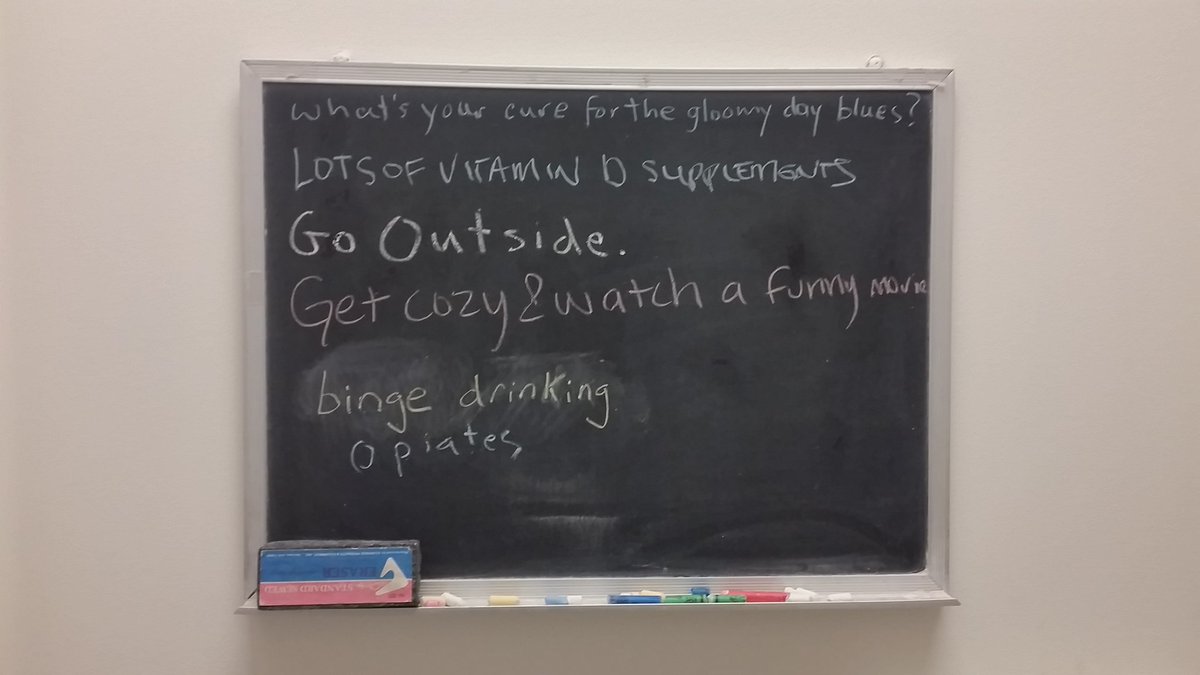 what's your cure for the gloomy day blues?
LOTS OF VITAMIN D SUPPLEMENTS
Go Outside.
Get cozy & watch a funny movie
binge drinking
opiates
ERASER
STANDARD SEWED